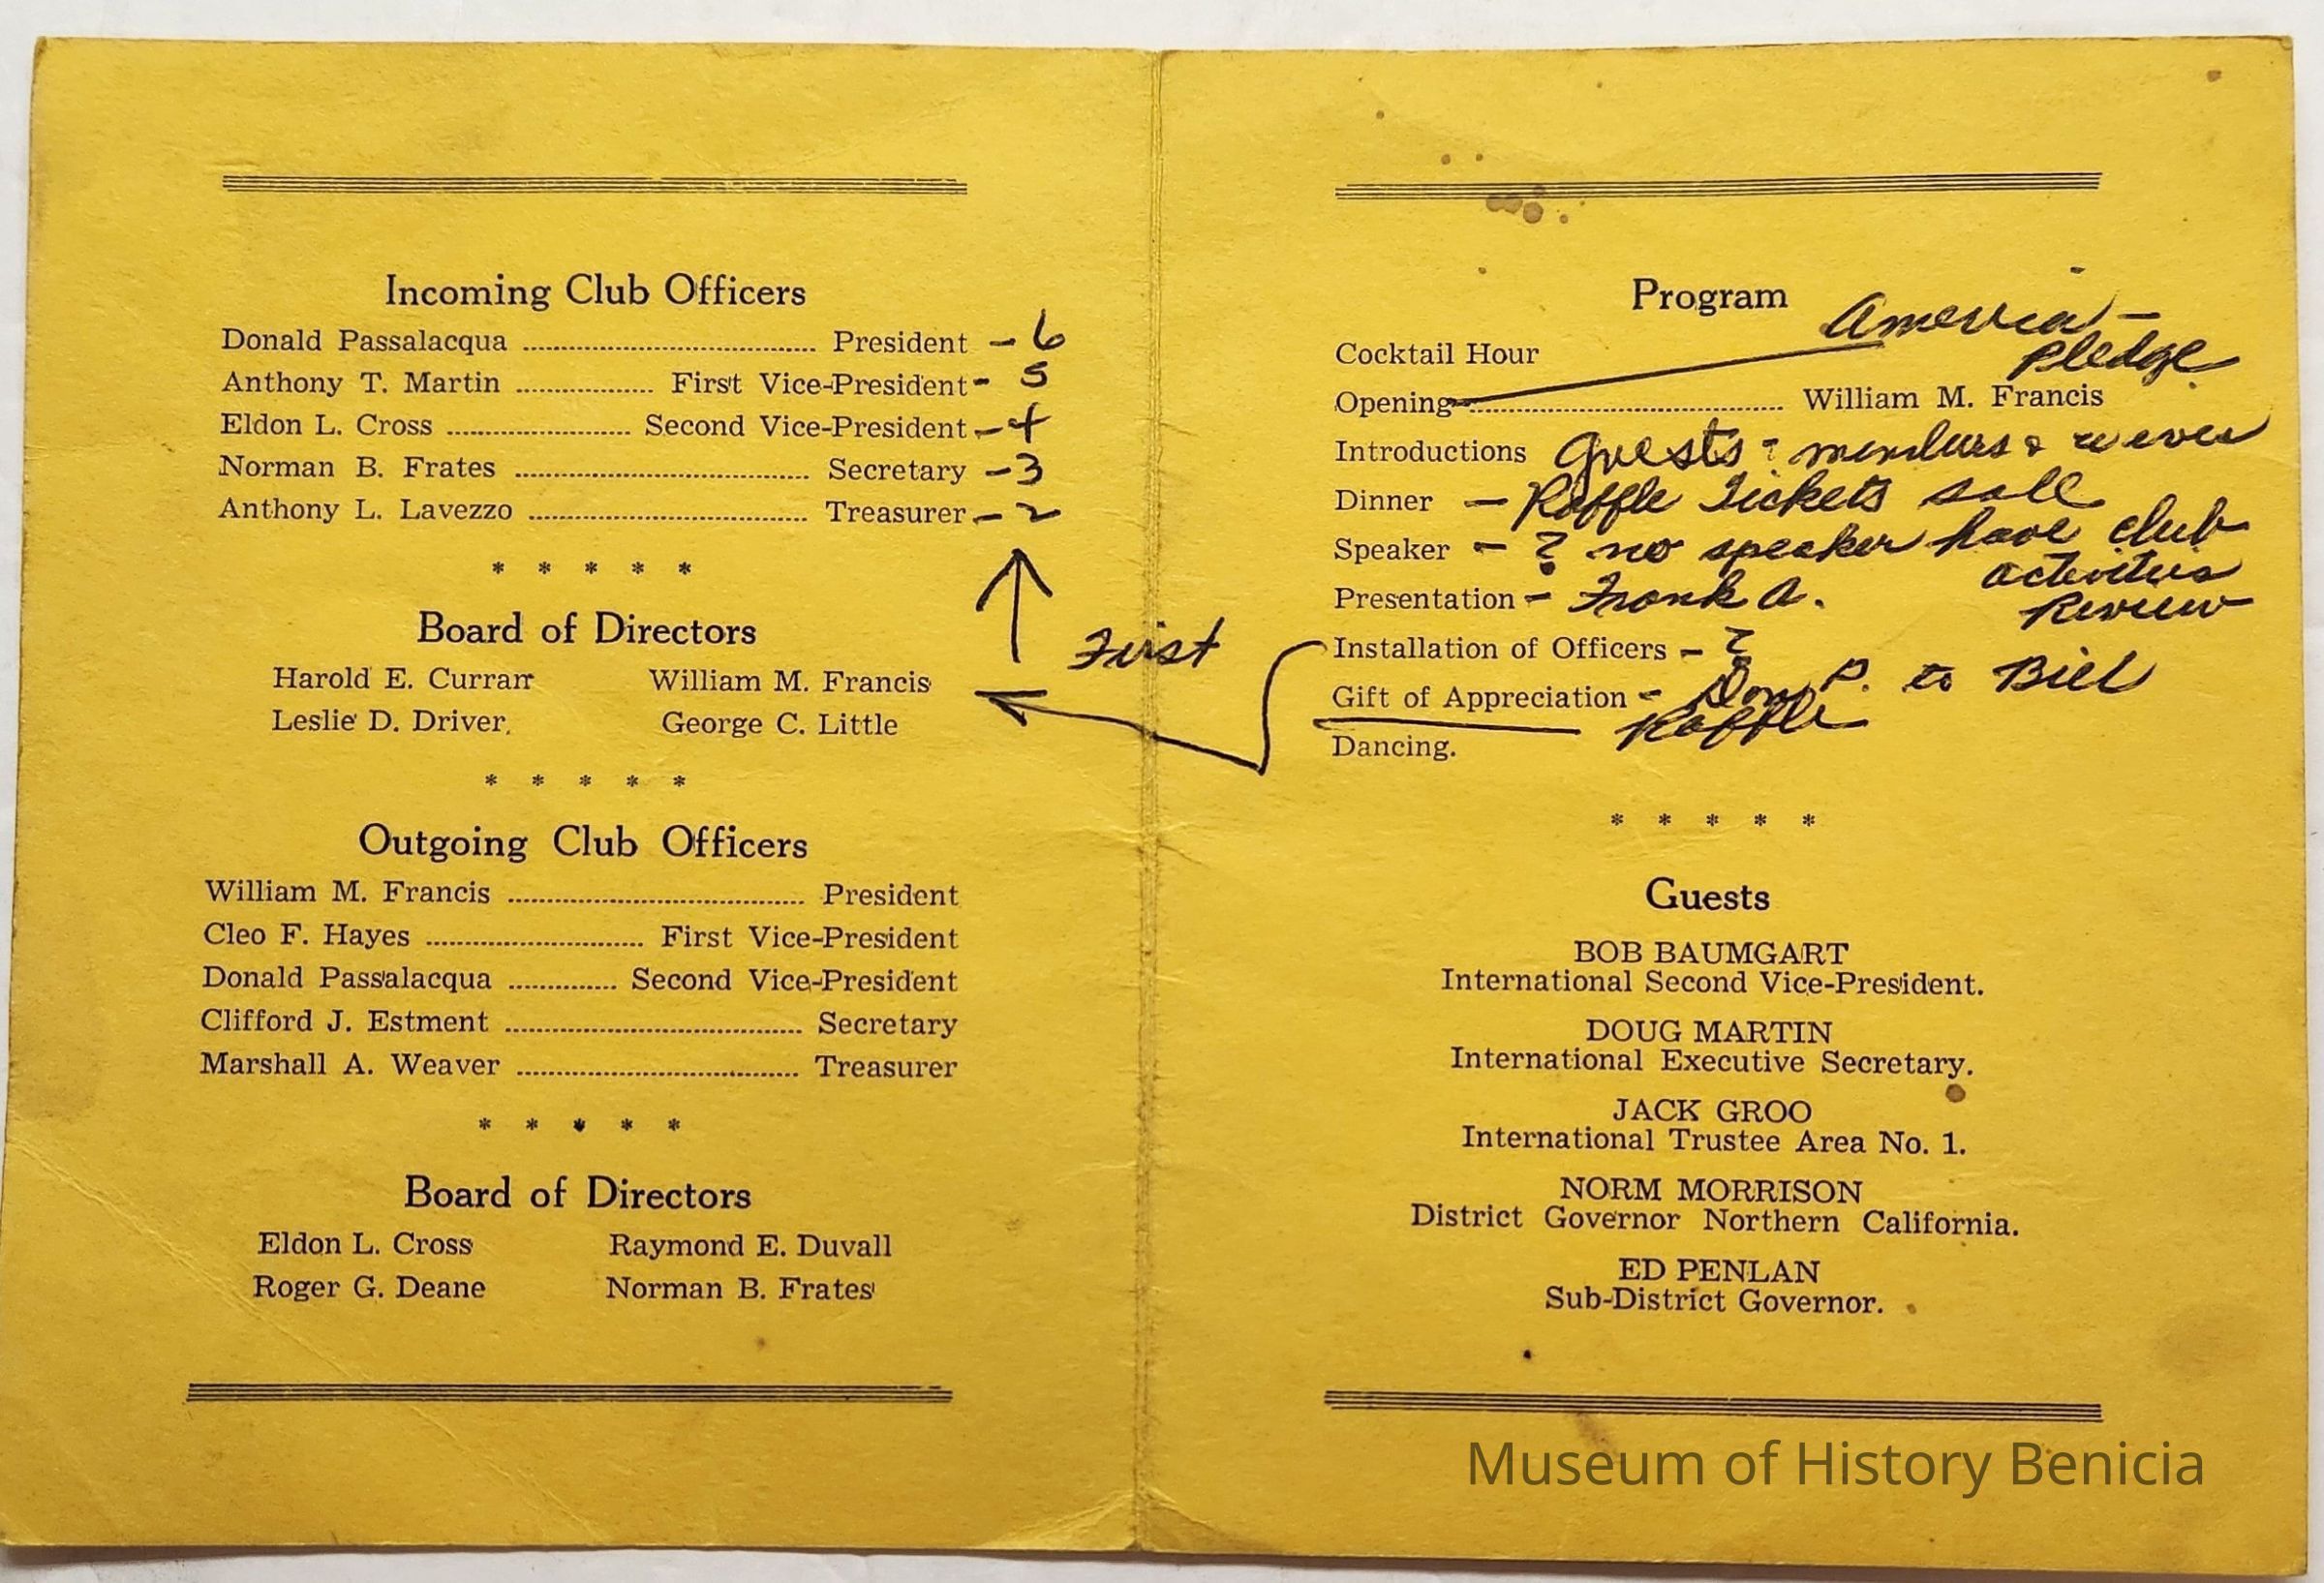 Incoming Club Officers
Donald Passalacqua ........ President - 6
Anthony T. Martin ........ First Vice-President - 5
Eldon L. Cross ........ Second Vice-President - 4
Norman B. Frates ........ Secretary - 3
Anthony L. Lavezzo ........ Treasurer - 2
* * * * *
Board of Directors
First
Harold E. Curran William M. Francis
Leslie D. Driver. George C. Little
* * * * *
Outgoing Club Officers
William M. Francis ........ President
Cleo F. Hayes ........ First Vice-President
Donald Passalacqua ........ Second Vice-President
Clifford J. Estment ........ Secretary
Marshall A. Weaver ........ Treasurer
* * * * *
Board of Directors
Eldon L. Cross Raymond E. Duvall
Roger G. Deane Norman B. Frates
Program
America -
Pledge
Cocktail Hour
Opening ........ William M. Francis
Introductions Guests - members &
Dinner - Raffle Tickets sale
Speaker - ? no speaker have club
activities
Review
Presentation - Frank A.
Installation of Officers - ?
Gift of Appreciation - Don P. to Bill
Raffle
Dancing.
* * * * *
Guests
BOB BAUMGART
International Second Vice-President.
DOUG MARTIN
International Executive Secretary.
JACK GROO
International Trustee Area No. 1.
NORM MORRISON
District Governor Northern California.
ED PENLAN
Sub-District Governor.
Museum of History Benicia